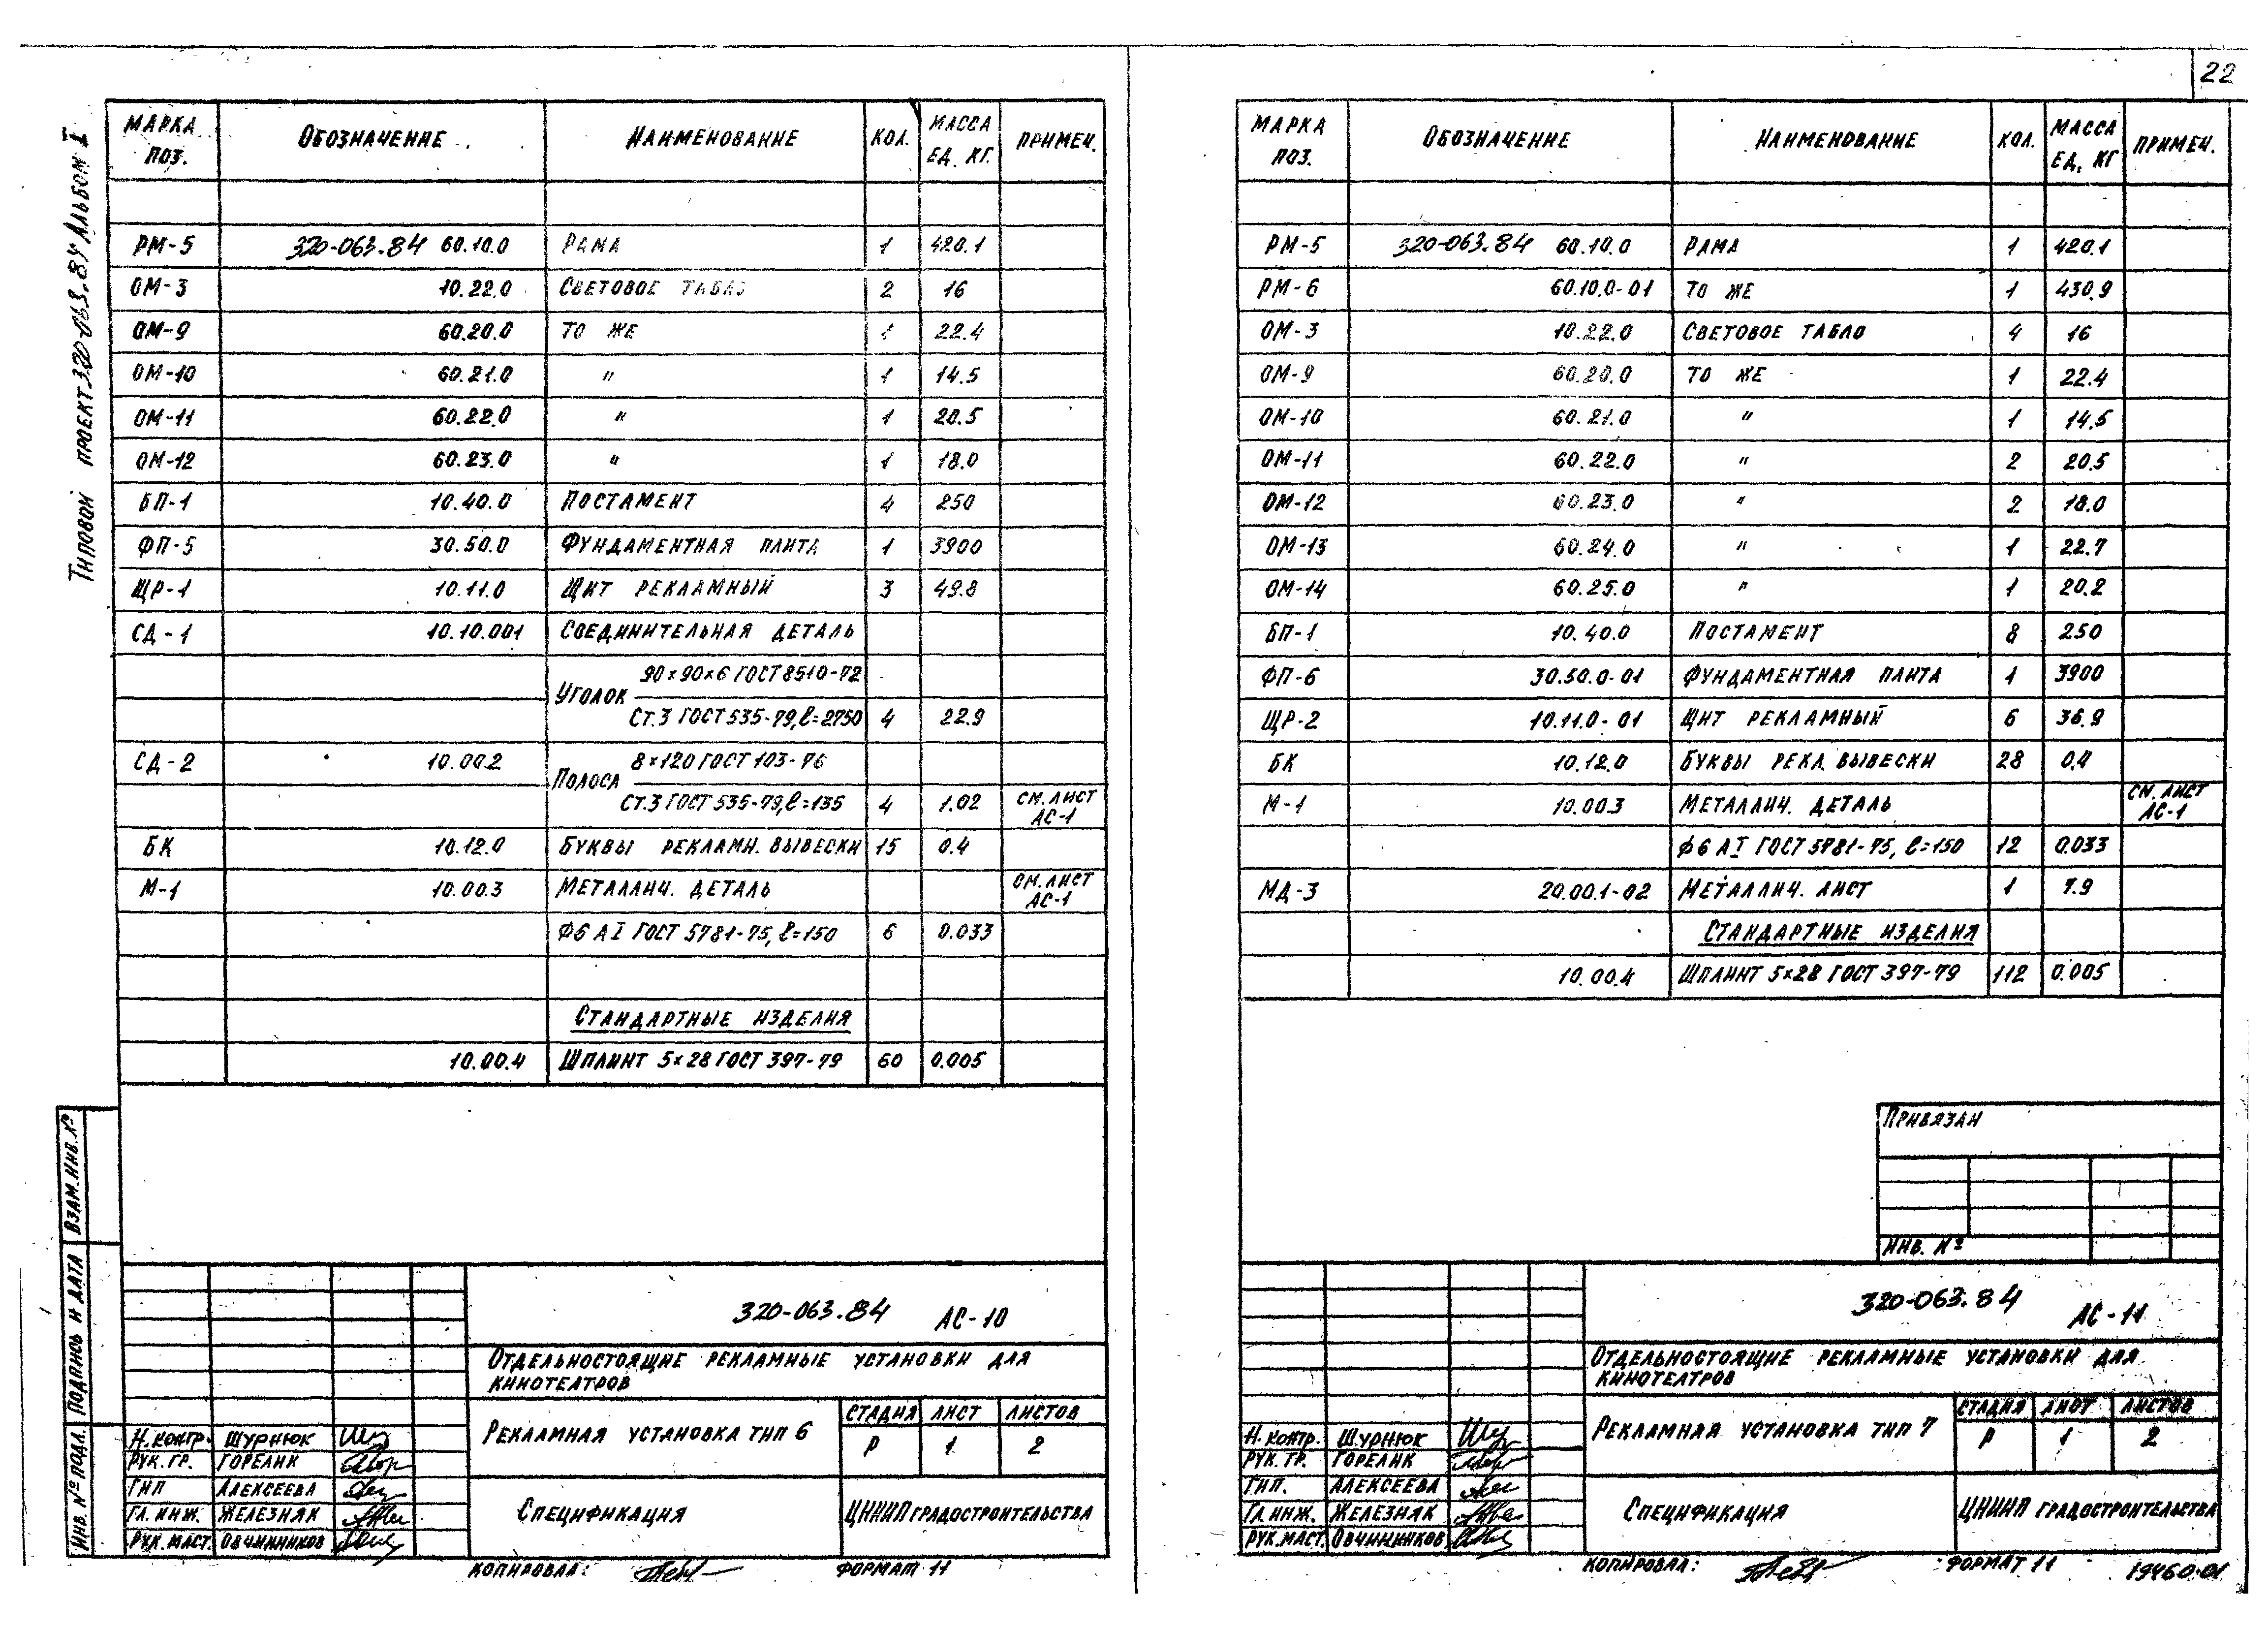 22
Типовой проект 320-063.84 Альбом I
МАРКА ПОЗ. ОБОЗНАЧЕНИЕ НАИМЕНОВАНИЕ КОЛ. МАССА ЕД. КГ. ПРИМЕЧ.
РМ-5 320-063.84 60.10.0 РАМА 1 420.1
ОМ-3 10.22.0 СВЕТОВОЕ ТАБЛО 2 16
ОМ-9 60.20.0 ТО ЖЕ 1 22.4
ОМ-10 60.21.0 " 1 14.5
ОМ-11 60.22.0 " 1 20.5
ОМ-12 60.23.0 " 1 18.0
БП-1 10.40.0 ПОСТАМЕНТ 4 250
ФП-5 30.50.0 ФУНДАМЕНТНАЯ ПЛИТА 1 3900
ЩР-1 10.11.0 ЩИТ РЕКЛАМНЫЙ 3 49.8
СД-1 10.10.001 СОЕДИНИТЕЛЬНАЯ ДЕТАЛЬ
90×90×6 ГОСТ 8510-72
УГОЛОК
Ст.3 ГОСТ 535-79, ℓ=2750 4 22.9
СД-2 10.00.2 8×120 ГОСТ 103-76
ПОЛОСА
Ст.3 ГОСТ 535-79, ℓ=135 4 1.02 СМ. ЛИСТ АС-1
БК 10.12.0 БУКВЫ РЕКЛАМН. ВЫВЕСКИ 15 0.4
М-1 10.00.3 МЕТАЛЛИЧ. ДЕТАЛЬ СМ. ЛИСТ АС-1
Ф6 АI ГОСТ 5781-75, ℓ=150 6 0.033
СТАНДАРТНЫЕ ИЗДЕЛИЯ
10.00.4 ШПЛИНТ 5×28 ГОСТ 397-79 60 0.005
ИНВ. № ПОДЛ. ПОДПИСЬ И ДАТА ВЗАМ. ИНВ. №
320-063.84 АС-10
ОТДЕЛЬНОСТОЯЩИЕ РЕКЛАМНЫЕ УСТАНОВКИ ДЛЯ
КИНОТЕАТРОВ
РЕКЛАМНАЯ УСТАНОВКА ТИП 6
СТАДИЯ ЛИСТ ЛИСТОВ
Р 1 2
Н. КОНТР. ШУРНЮК
РУК. ГР. ГОРЕЛИК
ГИП АЛЕКСЕЕВА
ГЛ. ИНЖ. ЖЕЛЕЗНЯК
РУК. МАСТ. ОВЧИННИКОВ
СПЕЦИФИКАЦИЯ
ЦНИИП ГРАДОСТРОИТЕЛЬСТВА
КОПИРОВАЛ: ФОРМАТ 11
МАРКА ПОЗ. ОБОЗНАЧЕНИЕ НАИМЕНОВАНИЕ КОЛ. МАССА ЕД. КГ ПРИМЕЧ.
РМ-5 320-063.84 60.10.0 РАМА 1 420.1
РМ-6 60.10.0-01 ТО ЖЕ 1 430.9
ОМ-3 10.22.0 СВЕТОВОЕ ТАБЛО 4 16
ОМ-9 60.20.0 ТО ЖЕ 1 22.4
ОМ-10 60.21.0 " 1 14.5
ОМ-11 60.22.0 " 2 20.5
ОМ-12 60.23.0 " 2 18.0
ОМ-13 60.24.0 " 1 22.7
ОМ-14 60.25.0 " 1 20.2
БП-1 10.40.0 ПОСТАМЕНТ 8 250
ФП-6 30.50.0-01 ФУНДАМЕНТНАЯ ПЛИТА 1 3900
ЩР-2 10.11.0-01 ЩИТ РЕКЛАМНЫЙ 6 36.9
БК 10.12.0 БУКВЫ РЕКЛ. ВЫВЕСКИ 28 0.4
М-1 10.00.3 МЕТАЛЛИЧ. ДЕТАЛЬ СМ. ЛИСТ АС-1
Ф6 АI ГОСТ 5781-75, ℓ=150 12 0.033
МД-3 20.00.1-02 МЕТАЛЛИЧ. ЛИСТ 1 7.9
СТАНДАРТНЫЕ ИЗДЕЛИЯ
10.00.4 ШПЛИНТ 5×28 ГОСТ 397-79 112 0.005
ПРИВЯЗАН
ИНВ. №
320-063.84 АС-11
ОТДЕЛЬНОСТОЯЩИЕ РЕКЛАМНЫЕ УСТАНОВКИ ДЛЯ
КИНОТЕАТРОВ
РЕКЛАМНАЯ УСТАНОВКА ТИП 7
СТАДИЯ ЛИСТ ЛИСТОВ
Р 1 2
Н. КОНТР. ШУРНЮК
РУК. ГР. ГОРЕЛИК
ГИП. АЛЕКСЕЕВА
ГЛ. ИНЖ. ЖЕЛЕЗНЯК
РУК. МАСТ. ОВЧИННИКОВ
СПЕЦИФИКАЦИЯ
ЦНИИП ГРАДОСТРОИТЕЛЬСТВА
КОПИРОВАЛ: ФОРМАТ 11
19460-01